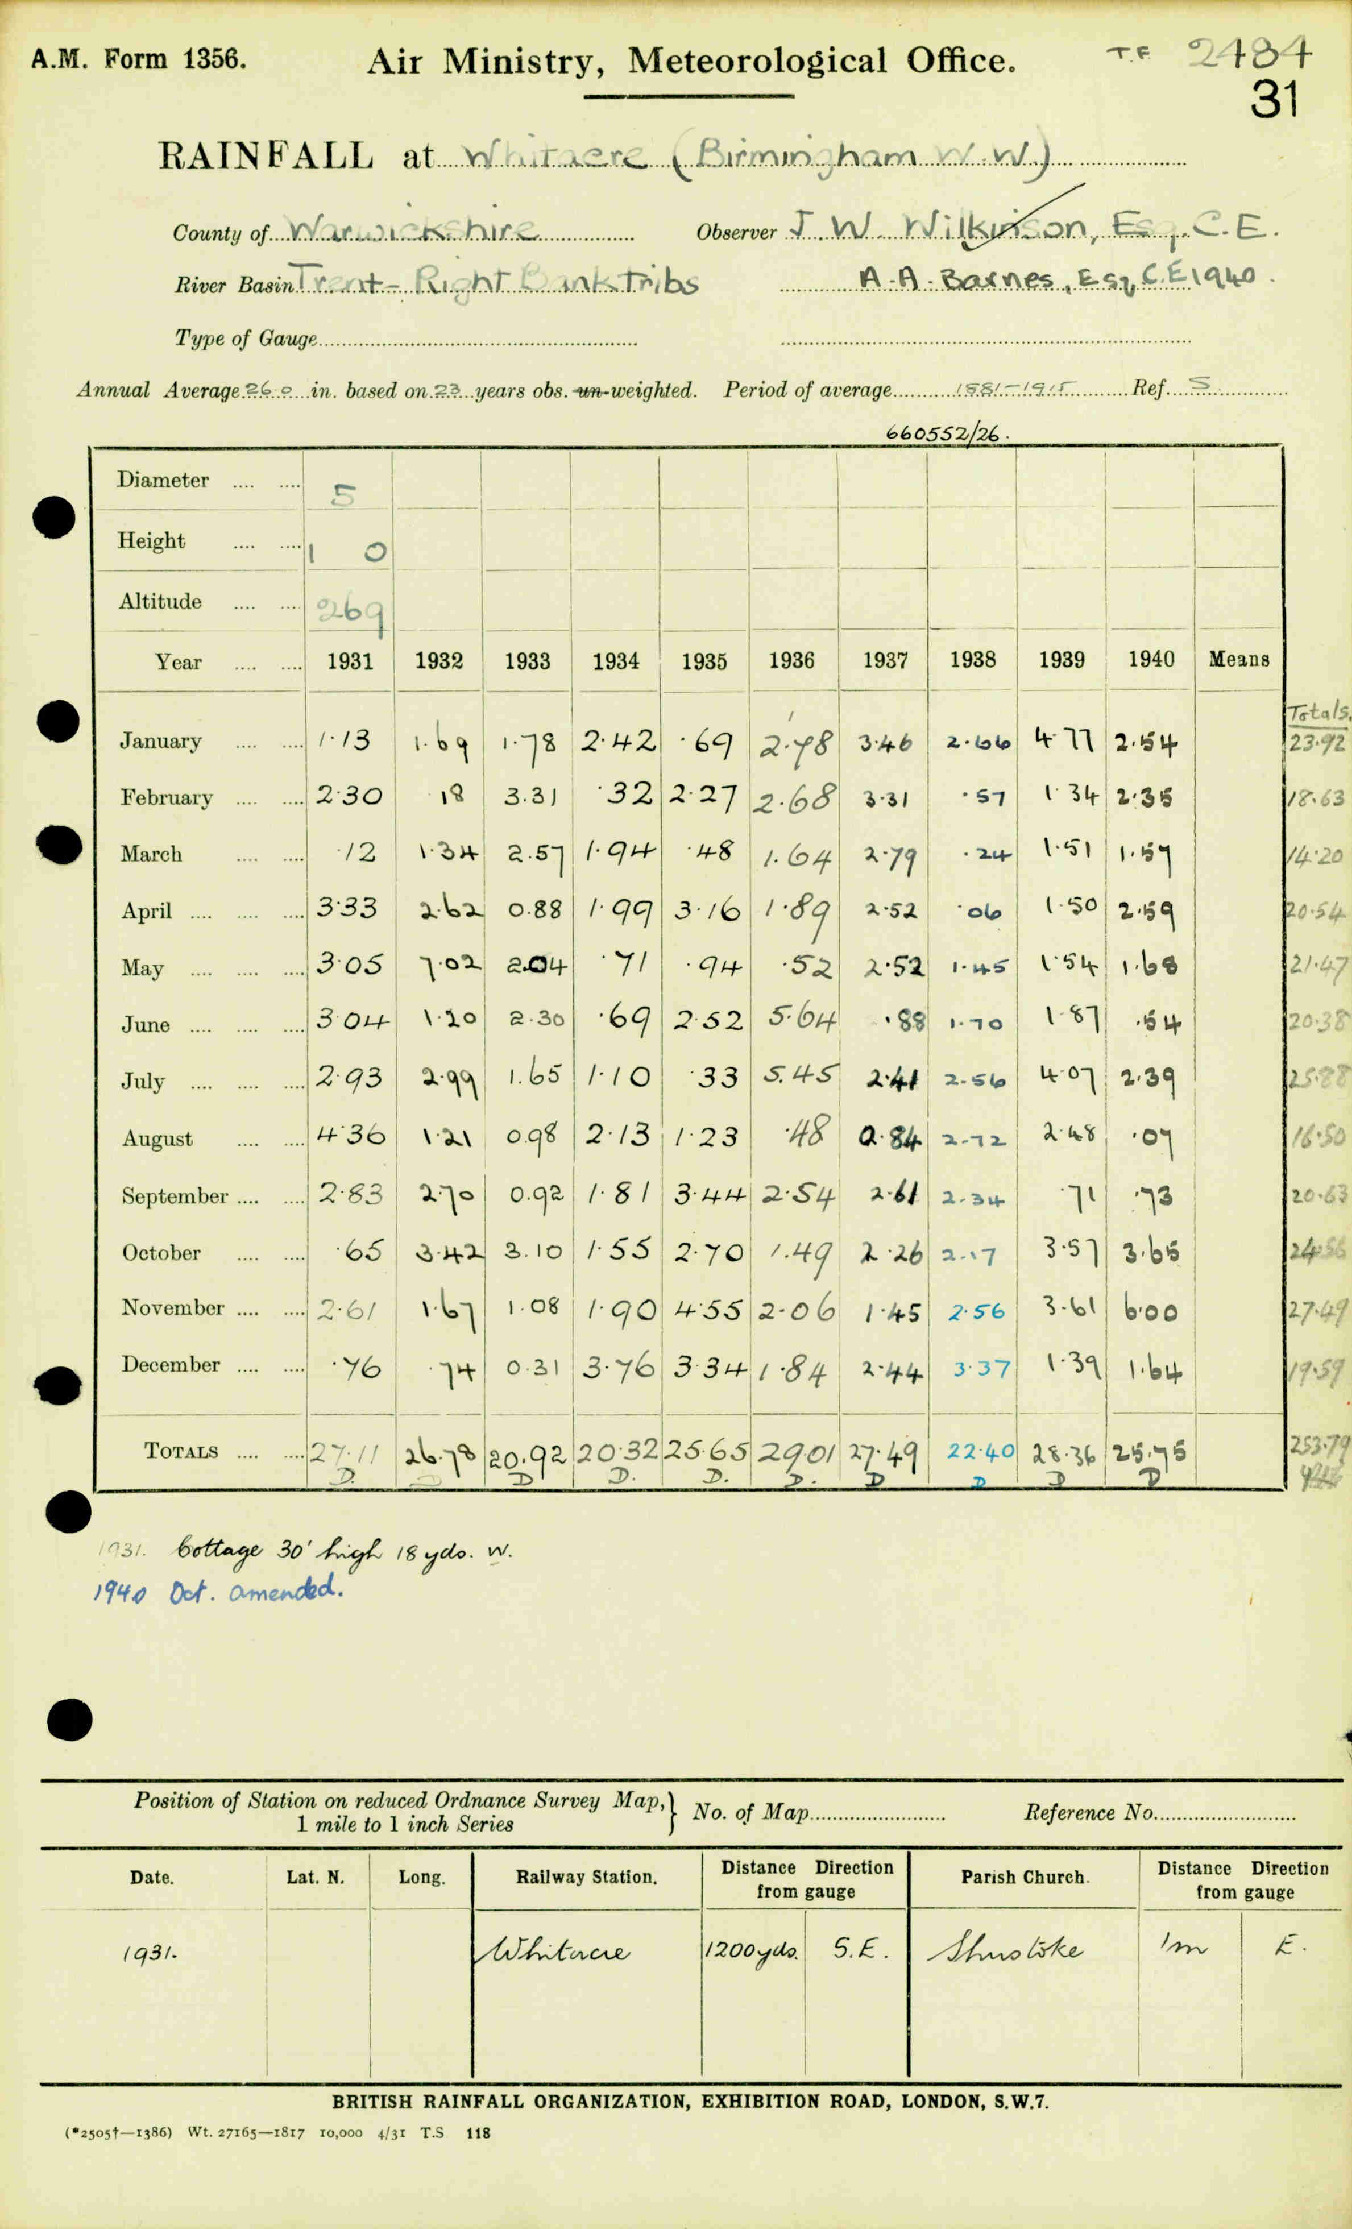 A.M. Form 1356. Air Ministry, Meteorological Office. T.F. 2484
31
RAINFALL at Whitacre (Birmingham W.W.)
County of Warwickshire Observer J.W. Wilkinson, Esq. C.E.
River Basin Trent - Right Bank Tribs A.A. Barnes, Esq C.E 1940.
Type of Gauge
Annual Average 26.0 in. based on 23 years obs. un-weighted. Period of average 1881-1915 Ref. S
660552/26.
Diameter 5
Height 1 0
Altitude 269
Year 1931 1932 1933 1934 1935 1936 1937 1938 1939 1940 Means
Totals.
January 1.13 1.69 1.78 2.42 .69 2.78 3.46 2.66 4.77 2.54 23.92
February 2.30 .18 3.31 .32 2.27 2.68 3.31 .57 1.34 2.35 18.63
March .12 1.34 2.57 1.94 .48 1.64 2.79 .24 1.51 1.57 14.20
April 3.33 2.62 0.88 1.99 3.16 1.89 2.52 .06 1.50 2.59 20.54
May 3.05 7.02 2.04 .71 .94 .52 2.52 1.45 1.54 1.68 21.47
June 3.04 1.20 2.30 .69 2.52 5.64 .88 1.70 1.87 .54 20.38
July 2.93 2.99 1.65 1.10 .33 5.45 2.41 2.56 4.07 2.39 25.88
August 4.36 1.21 0.98 2.13 1.23 .48 0.84 2.72 2.48 .07 16.50
September 2.83 2.70 0.92 1.81 3.44 2.54 2.61 2.34 .71 .73 20.63
October .65 3.42 3.10 1.55 2.70 1.49 2.26 2.17 3.57 3.65 24.56
November 2.61 1.67 1.08 1.90 4.55 2.06 1.45 2.56 3.61 6.00 27.49
December .76 .74 0.31 3.76 3.34 1.84 2.44 3.37 1.39 1.64 19.59
TOTALS 27.11 26.78 20.92 20.32 25.65 29.01 27.49 22.40 28.36 25.75 253.79
D. D D D. D. D. D D D D
1931. Cottage 30' high 18 yds. W.
1940 Oct. amended.
Position of Station on reduced Ordnance Survey Map,} No. of Map Reference No.
1 mile to 1 inch Series
Date. Lat. N. Long. Railway Station. Distance Direction from gauge Parish Church. Distance Direction from gauge
1931. Whitacre 1200 yds. S.E. Shustoke 1m E.
BRITISH RAINFALL ORGANIZATION, EXHIBITION ROAD, LONDON, S.W.7.
(*2505†—1386) Wt. 27165—1817 10,000 4/31 T.S 118